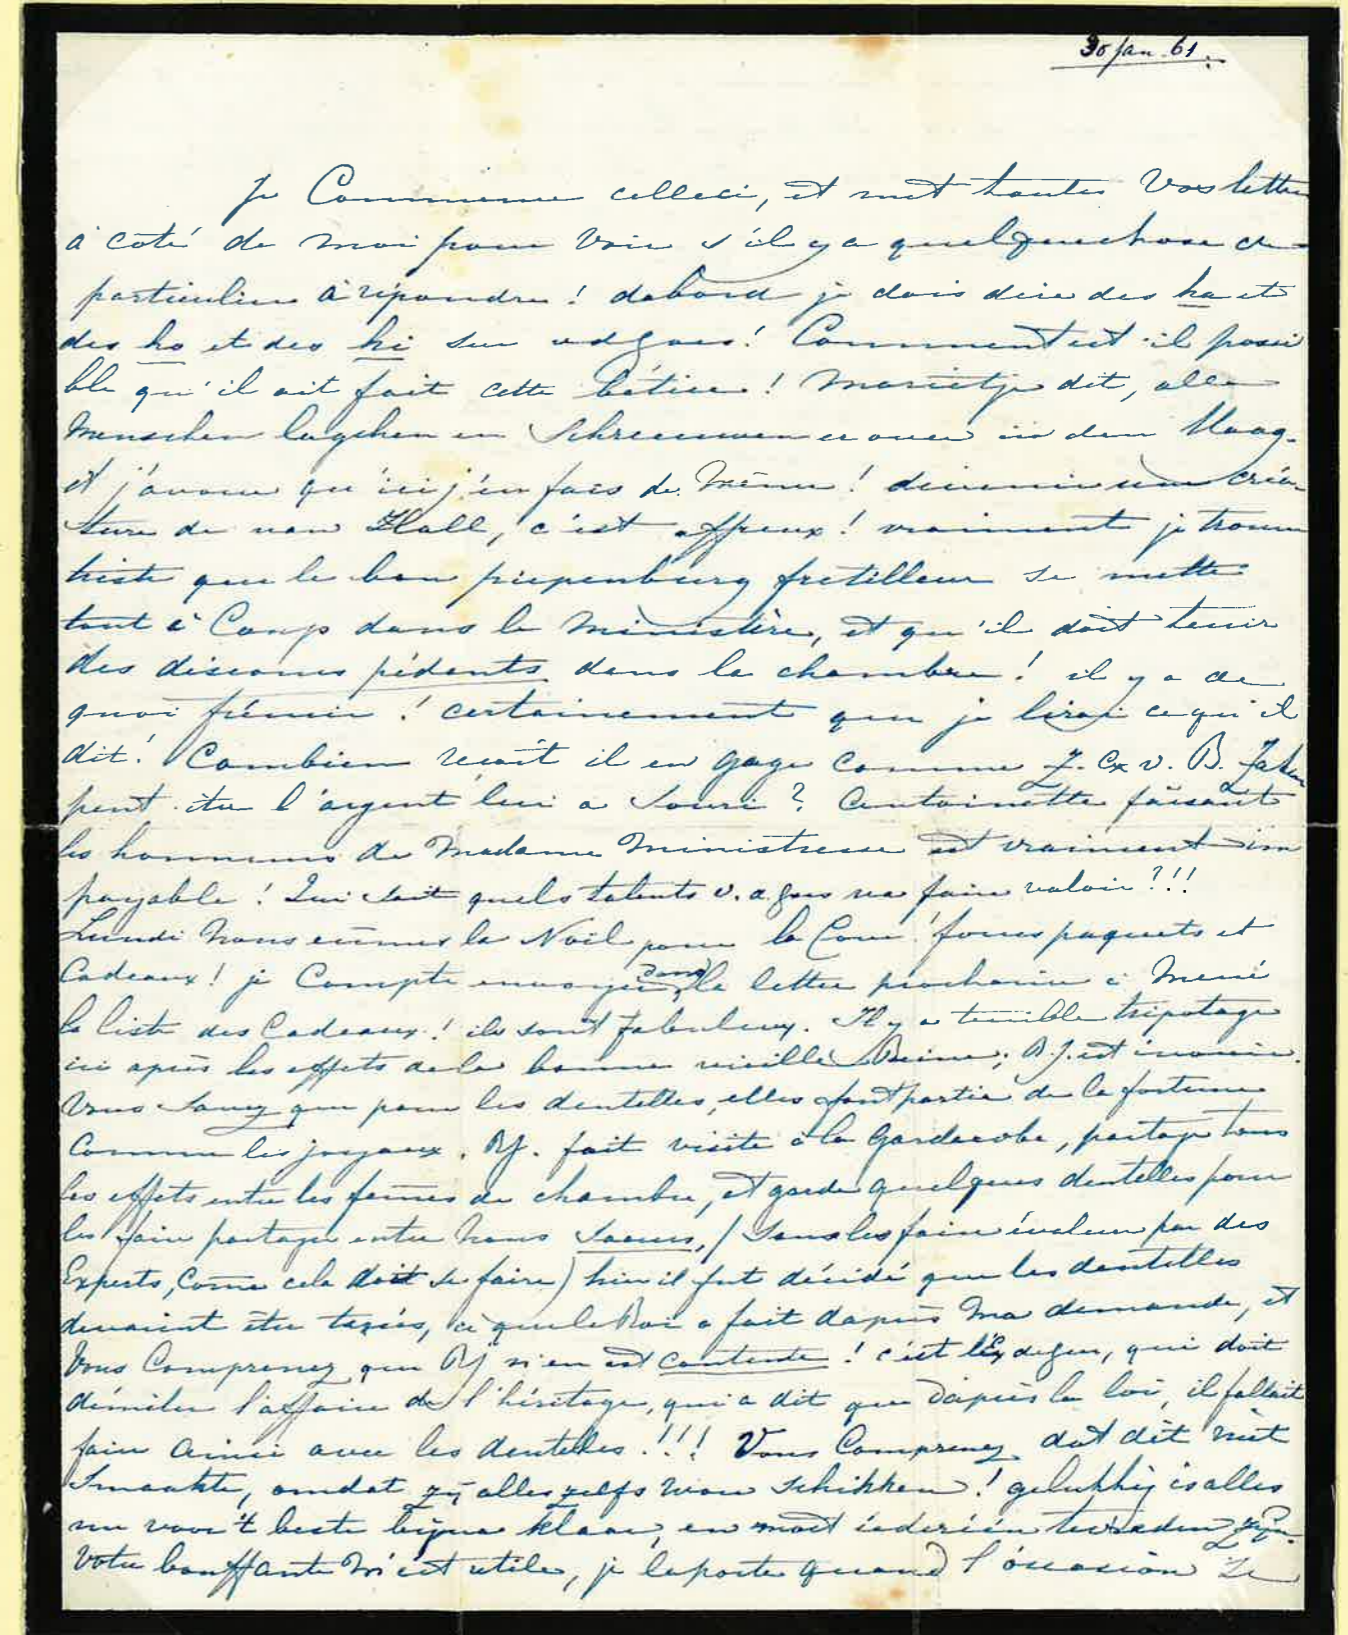 30 Jan. 61.
Je Commence celleci, et met toutes Vos lettres
à coté de moi pour Voir s'il y a quelquechose de
particulier à répondre! dabord je dois dire des ha et
des ho et des hi sur Comment est-il possi
ble qu'il ait fait cette bétise! Marietje dit, alle
Menschen lagchen en Schreeuwen er over in den Haag.
et j'avoue qu'ici j'en fais de Même! devenir une créa-
ture de van Hall, c'est affreux! vraiment je trouve
triste que le bon piepenburg fretilleur se mette
tout à Coup dans le Ministère, et qu'il doit tenir
des discours pédants dans la chambre! il y a de
quoi frémir! certainement que je lirai ce qu'il
dit! Combien recoit il en gage comme Z. Ex v. B. Zaken
peut-être l'argent lui a Souri? Antoinette faisant
les honneurs de Madame Ministresse est vraiment im
payable! Qui sait quels talents v. a goes va faire valoir?!!
Lundi Nous eumes la Noël pour la Cour! paquets et
Cadeaux! je Compte envoyer dans la lettre prochaine à Mené
la liste des Cadeaux! ils sont fabuleux. Il y a terrible tripotage
ici après les effets de la bonne vieille Reine; R.J. est inouie.
Vous Savez que pour les dentelles, elles font partie de la fortune
Comme les joyaux. RJ. fait visite à la Garderobe, partage tous
les effets entre les femes de chambre, et garde quelques dentelles pour
les faire partager entre Nous Soeurs, (Sans les faire évaluer par des
Experts, Come cela doit se faire) hier il fut décidé que les dentelles
devaient être taxées, ce que le Roi a fait dapres Ma demande, et
Vous Comprenez que RJ n'en est contente! c'est qui doit
démêler l'affaire de l'héritage, qui a dit que dapiès la loi, il fallait
faire Ainsi avec les dentelles!!! Vous Comprenez dat dit niet
Smaakte, omdat zÿ alles zelfs wou Schikken! gelukkig is alles
nu voor 't beste bijna klaar, en moet iederéén tevreden zyn.
Votre bouffante M'est utile, je la porte quand l'occasion se